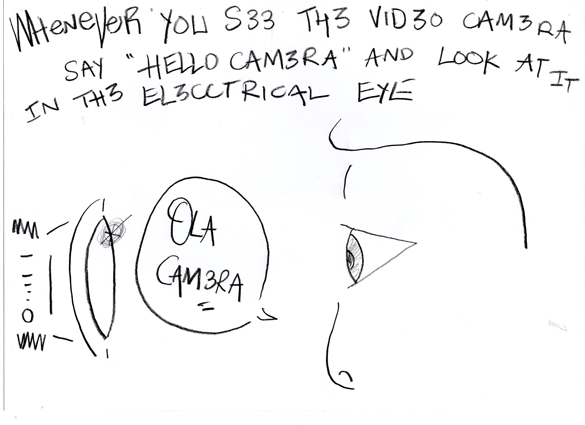 WHENEVER YOU S33 TH3 VID3O CAM3RA
SAY "HELLO CAM3RA" AND LOOK AT IT
IN TH3 EL3CCTRICAL EYE
OLA
CAM3RA